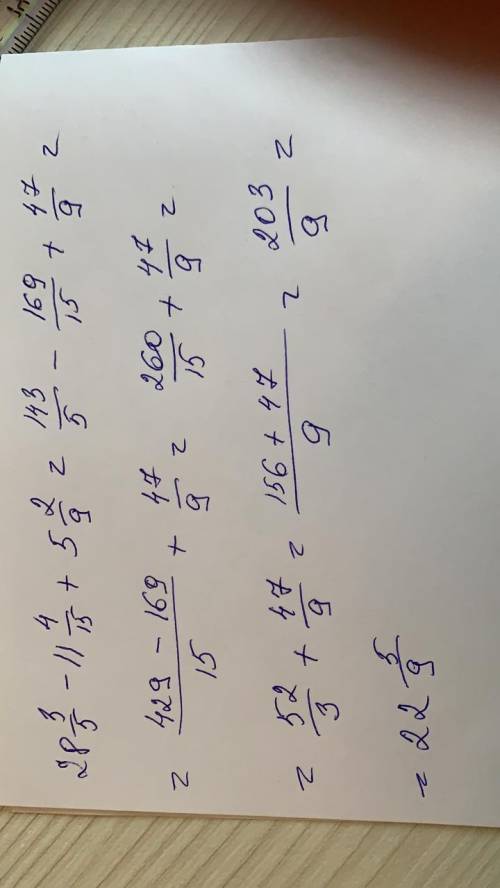 28 3/5 - 11 4/15 + 5 2/9 = 143/5 - 169/15 + 47/9 =
= (429 - 169)/15 + 47/9 = 260/15 + 47/9 =
= 52/3 + 47/9 = (156 + 47)/9 = 203/9 =
= 22 5/9